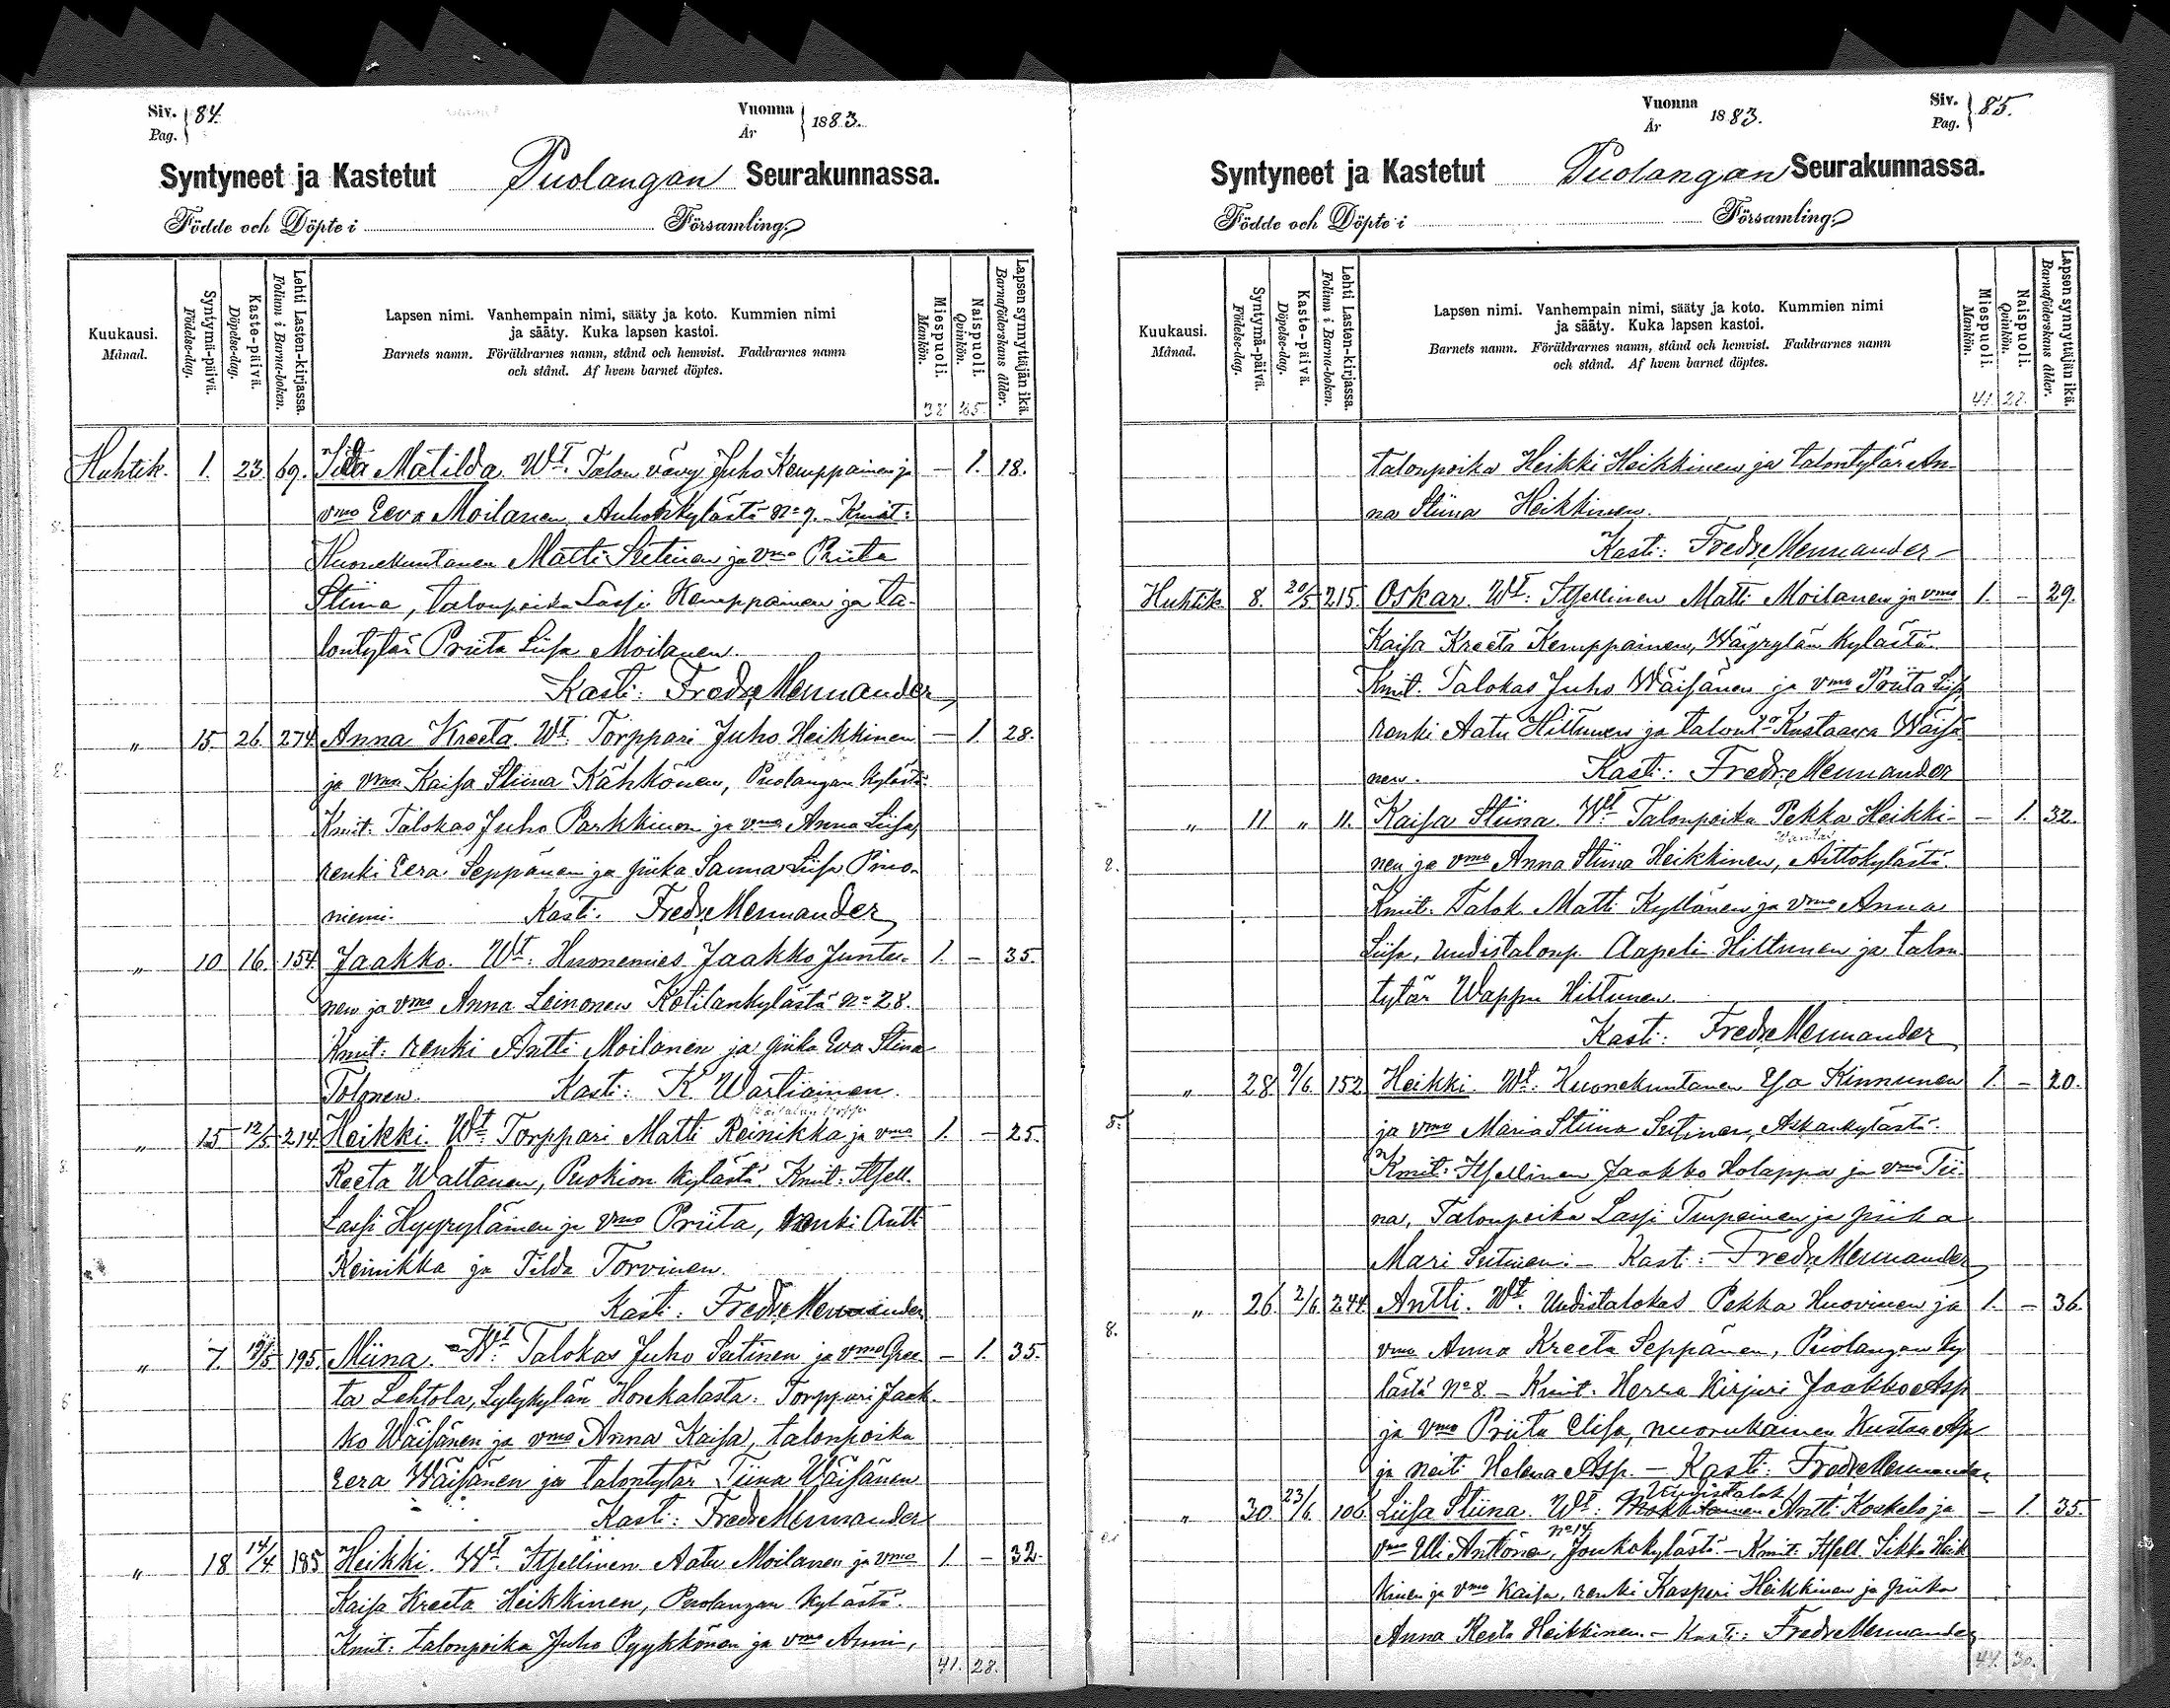 Siv. Pag. 84.
Vuonna År 1883.
Syntyneet ja Kastetut Puolangan Seurakunnassa.
Födde och Döpte i Församling.
Kuukausi. Månad.
Syntymä-päivä. Födelse-dag.
Kaste-päivä. Döpelse-dag.
Lehti Lasten-kirjassa. Folium i Barna-boken.
Lapsen nimi. Vanhempain nimi, sääty ja koto. Kummien nimi
ja sääty. Kuka lapsen kastoi.
Barnets namn. Föräldrarnes namn, stånd och hemvist. Faddrarnes namn
och stånd. Af hvem barnet döptes.
Miespuoli. Mankön.
Naispuoli. Qvinkön.
Lapsen synnyttäjän ikä. Barnaföderskans ålder.
38 25.
Huhtik. 1. 23. 69. Matilda. Wt. Talon vävy Juho Kemppainen ja — 1. 18.
vmo Eeva Moilanen, Auhonkylästä No 9. Kmit:
Huonekuntanen Matti Seitinen ja vmo Priita
Stiina, talonpoika Lassi Kemppainen ja ta-
lontytär Priita Liisa Moilanen.
Kasti: Fredr. Mennander
" 15. 26. 274. Anna Kreeta. Wt. Torppari Juho Heikkinen — 1. 28.
ja vmo Kaisa Stiina Kähkönen, Puolangan kylästä.
Kmit. Talokas Juho Parkkinen ja vmo Anna Liisa,
renki Eera Seppänen ja piika Sanna Liisa Pino-
niemi. Kasti. Fredr. Mennander
" 10 16. 154. Jaakko. Wt: Huonemies Jaakko Juntu- 1. — 35.
nen ja vmo Anna Leinonen Kotilankylästä No 28.
Kmit: renki Antti Moilanen ja piika Eva Stina
Tolonen. Kasti: K. Wartiainen.
" 15 12/5 214. Heikki. Wt. Torppari Matti Reinikka ja vmo 1. — 25.
Reeta Waltanen, Puokion kylästä. Kmit: Itsell.
Lassi Hyyryläinen ja vmo Priita, renki Antti
Reinikka ja Tilda Torvinen.
Kasti: Fredr. Mennander
" 7. 195. Miina. Wt. Talokas Juho Seitinen ja vmo Gree- — 1. 35.
ta Lehtola, Sylykylän Torppari Jaak-
ko Wäisänen ja vmo Anna Kaisa, talonpoika
Eera Wäisänen ja talontytär Tiina Wäisänen
Kasti: Fredr. Mennander
" 18 14/4 185 Heikki. Wt. Itsellinen Aatu Moilanen ja vmo 1 — 32.
Kaisa Kreeta Heikkinen, Puolangan kylästä.
Kmit: talonpoika Juho Pyykkönen ja vmo Anni,
41. 28.
Vuonna År 1883.
Siv. Pag. 85.
Syntyneet ja Kastetut Puolangan Seurakunnassa.
Födde och Döpte i Församling.
Kuukausi. Månad.
Syntymä-päivä. Födelse-dag.
Kaste-päivä. Döpelse-dag.
Lehti Lasten-kirjassa. Folium i Barna-boken.
Lapsen nimi. Vanhempain nimi, sääty ja koto. Kummien nimi
ja sääty. Kuka lapsen kastoi.
Barnets namn. Föräldrarnes namn, stånd och hemvist. Faddrarnes namn
och stånd. Af hvem barnet döptes.
Miespuoli. Mankön.
Naispuoli. Qvinkön.
Lapsen synnyttäjän ikä. Barnaföderskans ålder.
41. 28.
talonpoika Heikki Heikkinen ja talontytär An-
na Stiina Heikkinen.
Kasti: Fredr. Mennander
Huhtik. 8. 20/5 215. Oskar. Wt: Itsellinen Matti Moilanen ja vmo 1. — 29.
Kaisa Kreeta Kemppainen, Wäyrylän kylästä.
Kmit. Talokas Juho Wäisänen ja vmo Priita Liisa,
renki Aatu Hiltunen ja talont. Kustaava Wäisä-
nen. Kasti: Fredr. Mennander
" 11. " 11. Kaisa Stiina. Wt Talonpoika Pekka Heikki- — 1. 32.
nen ja vmo Anna Stiina Heikkinen, Aittokylästä.
Kmit: Talok. Matti Kyllönen ja vmo Anna
Liisa, Uudistalonp. Aapeli Hiltunen ja talon
tytär Wappu Hiltunen.
Kasti: Fredr. Mennander
" 28 9/6 152 Heikki. Wt: Huonekuntanen Esa Kinnunen 1. — 20.
ja vmo Maria Stiina Seitinen, Askankylästä.
Kmit: Itsellinen Jaakko Holappa ja vmo Tii-
na, Talonpoika Lassi Turpeinen ja piika
Mari Seitinen. — Kasti: Fredr. Mennander
" 26. 2/6 244. Antti. Wt. Uudistalokas Pekka Huovinen ja 1. — 36.
vmo Anna Kreeta Seppänen, Puolangan ky
lästä No 8. — Kmit. Herra Kirjuri Jaakko Asp
ja vmo Priita Elisa, nuorukainen Kustaa Asp
ja neiti Helena Asp. — Kasti: Fredr. Mennander
Uudistalok.
" 30. 23/6 106. Liisa Stiina. Wt: Mökkiläinen Antti Koskelo ja — 1. 35.
No 14
vmo Ulli Anttonen, Joukokylästä. — Kmit: Itsell. Sikko Heik
kinen ja vmo Kaisa, renki Kasperi Heikkinen ja piika
Anna Reeta Heikkinen. — Kasti: Fredr. Mennander
44. 30.